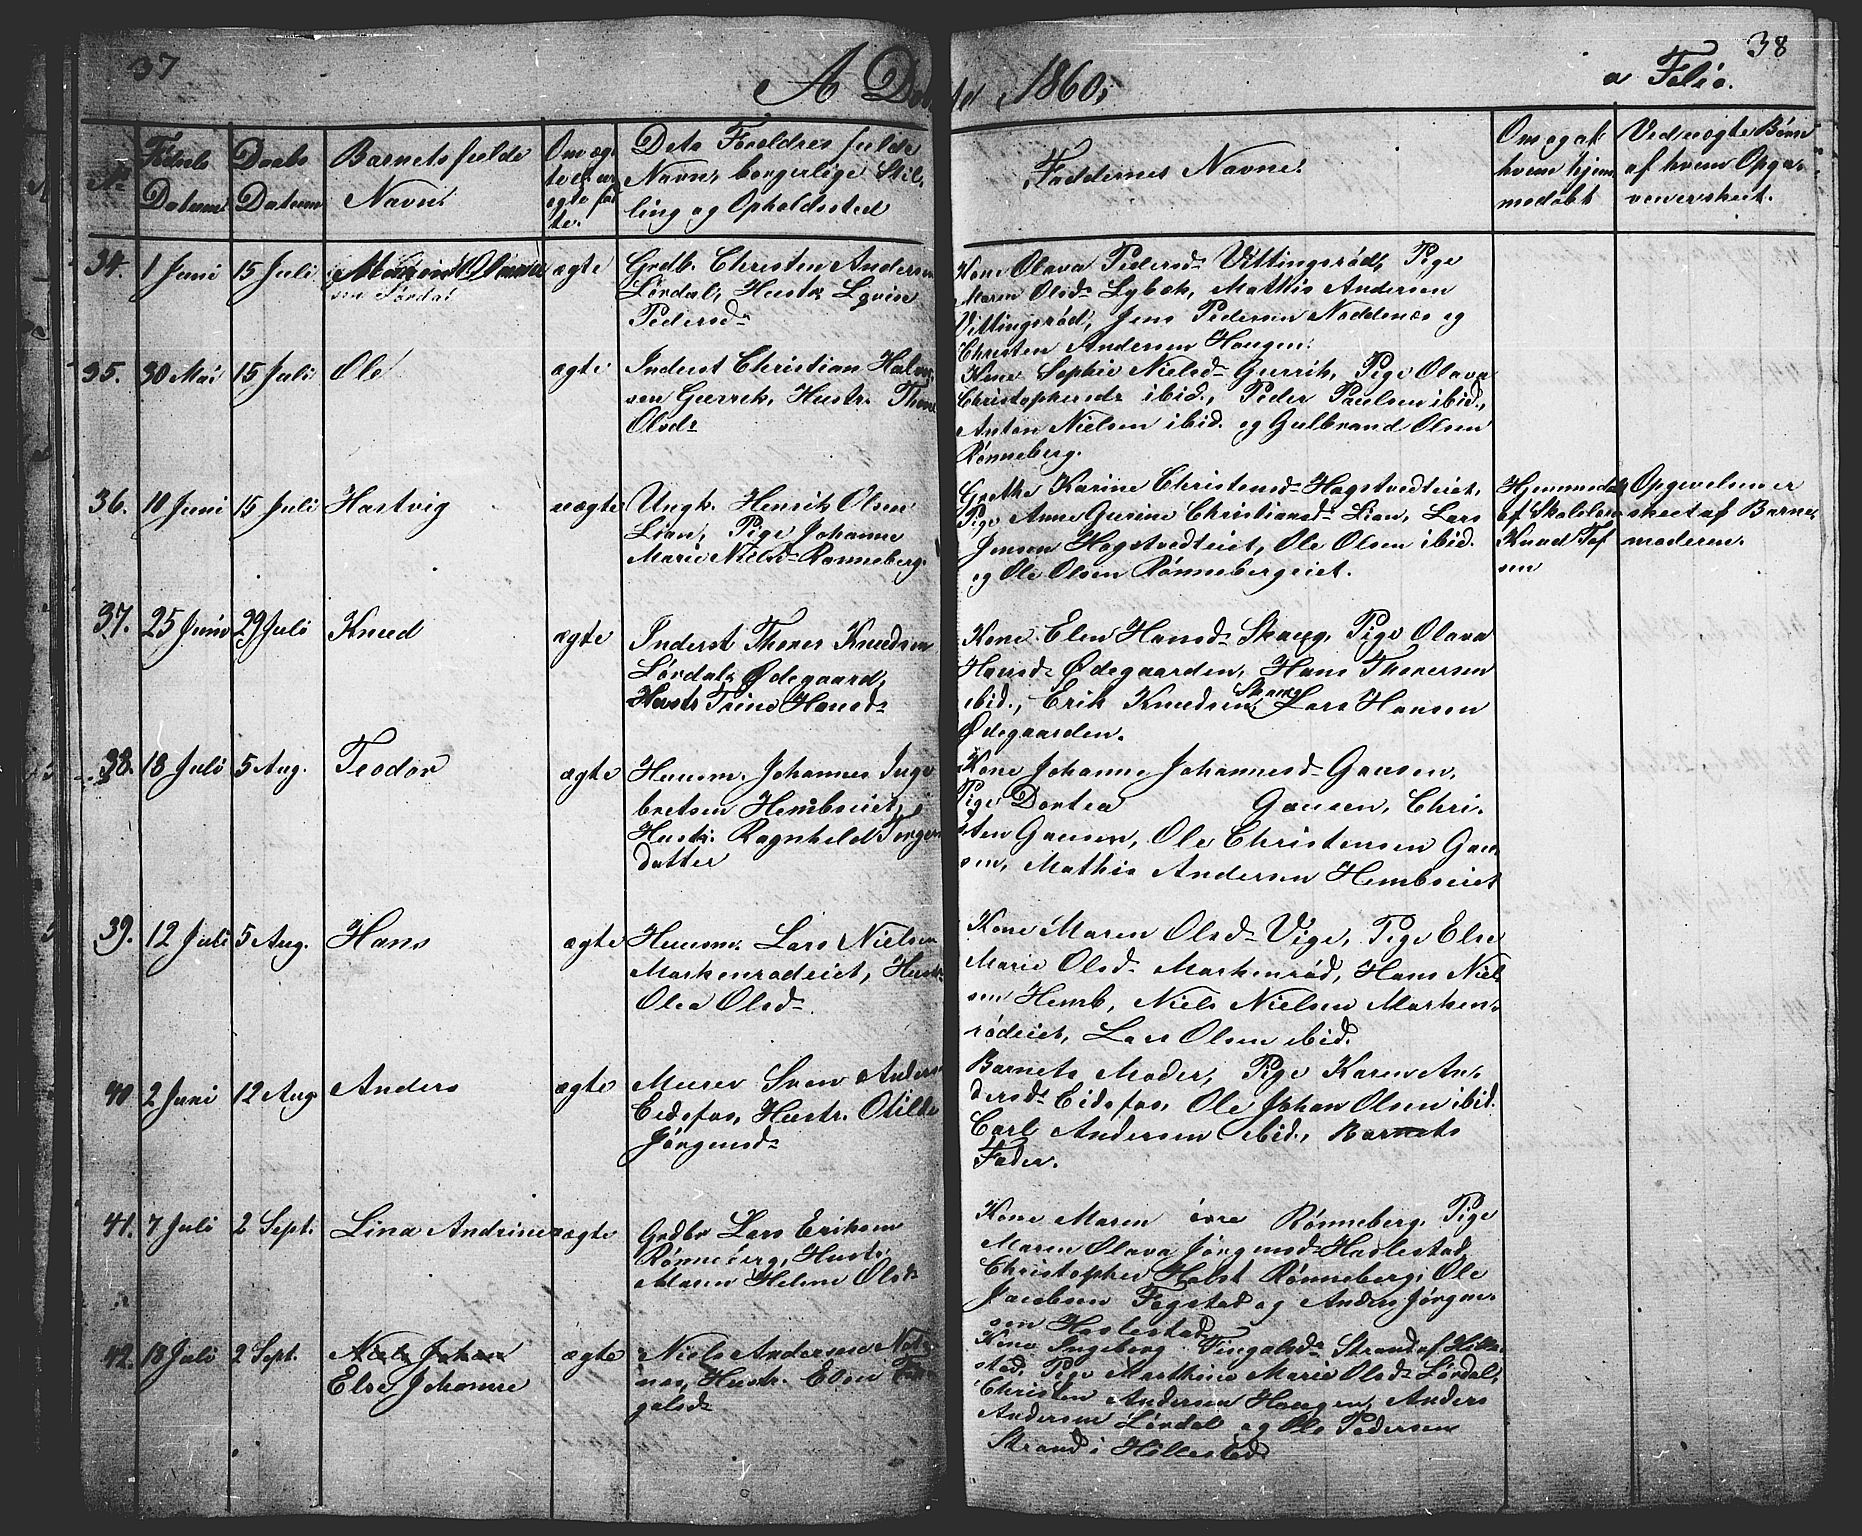 37
38
A Døbte 1860.
a Folio.
No
Fødsels Datum
Daabs Datum
Barnets fulde Navn.
Om ægte eller uægte født.
Dets Forældres fulde
Navn, borgerlige Stil-
ling og Opholdssted
Faddernes Navne.
Om og af
hvem hjem-
medøbt
Ved uægte Børn
af hvem Opga-
ven er skeet.
34. 1 Juni 15 Juli
ægte
Grdb. Christen Andersen
Lørdal, Hustr. Lovise
Pedersd.
Kone Olava Pedersd. Vittingsrød, Pige
Maren Olsd. Lybæk, Mathis Andersen
Vittingsrød, Jens Pedersen Noddenæs og
Christen Andersen Haugen.
35. 30 Mai 15 Juli Ole ægte
Inderst Christian Halvor-
sen Gurrik, Hustr. Thone
Olsdr
Kone Sophie Nielsd. Gurrik, Pige Olava
Christophersdr ibid., Peder Paulsen ibid.,
Anton Nielsen ibid. og Gulbrand Olsen
Rønneberg.
36. 10 Juni 15 Juli Hartvig uægte
Ungk. Henrik Olsen
Lian, Pige Johanne
Marie Nielsd. Rønneberg.
Grethe Karine Christensd. Hagstvedteiet,
Pige Anne Gurine Christiansd. Lian, Lars
Jensen Hagstvedteiet, Ole Olsen ibid.
og Ole Olsen Rønnebergeiet.
Hjemmedøbt
af Skolelærer
Knud Tof
sen
Opgivelsen er
skeet af Barne-
moderen.
37. 25 Juni 29 Juli Knud ægte
Inderst Thorer Knudsen
Lørdal, Ødegaard,
Hustr Trine Hansd.
Kone Elen Hansd. Skaug, Pige Olava
Hansd. Ødegaarden, Hans Thoresen
ibid., Erik Knudsen Skaug, Lars Hansen
Ødegaarden.
38. 18 Juli 5 Aug. Teodor ægte
Huusm. Johannes Inge-
bretsen Hembseiet,
Hustr. Ragnhild Torger
datter
Kone Johanne Johannesd. Gausen,
Pige Dortea Gausen, Chri-
sten Gausen, Ole Christensen Gau-
sen, Mathis Andersen Hembseiet
39. 12 Juli 5 Aug. Hans ægte
Huusm. Lars Nielsen
Markenrødeiet, Hustr
Olea Olsd.
Kone Maren Olsd. Vige, Pige Else
Marie Olsd. Markenrød, Hans Niel-
sen Hemb, Niels Nielsen Marken-
rødeiet, Lars Olsen ibid.
40 2 Juni 12 Aug Anders ægte
Murer Sven Anders
Eidsfos, Hustr. Otilde
Jørgensd.
Barnets Moder, Pige Karen An-
dersd. Eidsfos, Ole Johan Olsen ibid.
Carl Andersen ibid., Barnets
Fader.
41. 7 Juli 2 Sept. Lina Andrine ægte
Grdbr Lars Eriksen
Rønneberg, Hustr.
Maren Helene Olsdr
Kone Maren Rønneberg, Pige
Maren Olava Jørgensd. Haslestad,
Christopher Holst Rønneberg, Ole
Jacobsen Fegstad og Anders Jørgen-
sen Haslestad
42. 18 Juli 2 Sept. Niels Johan
Else Johanne
ægte
Niels Andersen Nod-
næs, Hustr. Elen Fin-
galsdr
Kone Ingeborg Fingalsdr Strand af Hille-
stad, Pige Mathine Marie Olsd. Lørdal,
Christen Andersen Haugen, Anders
Andersen Lørdal og Ole Pedersen
Strand i Hillestad